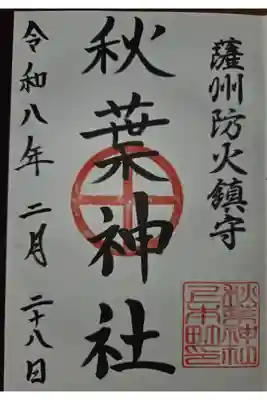 薩州防火鎮守
秋葉神社
令和八年二月二十八日